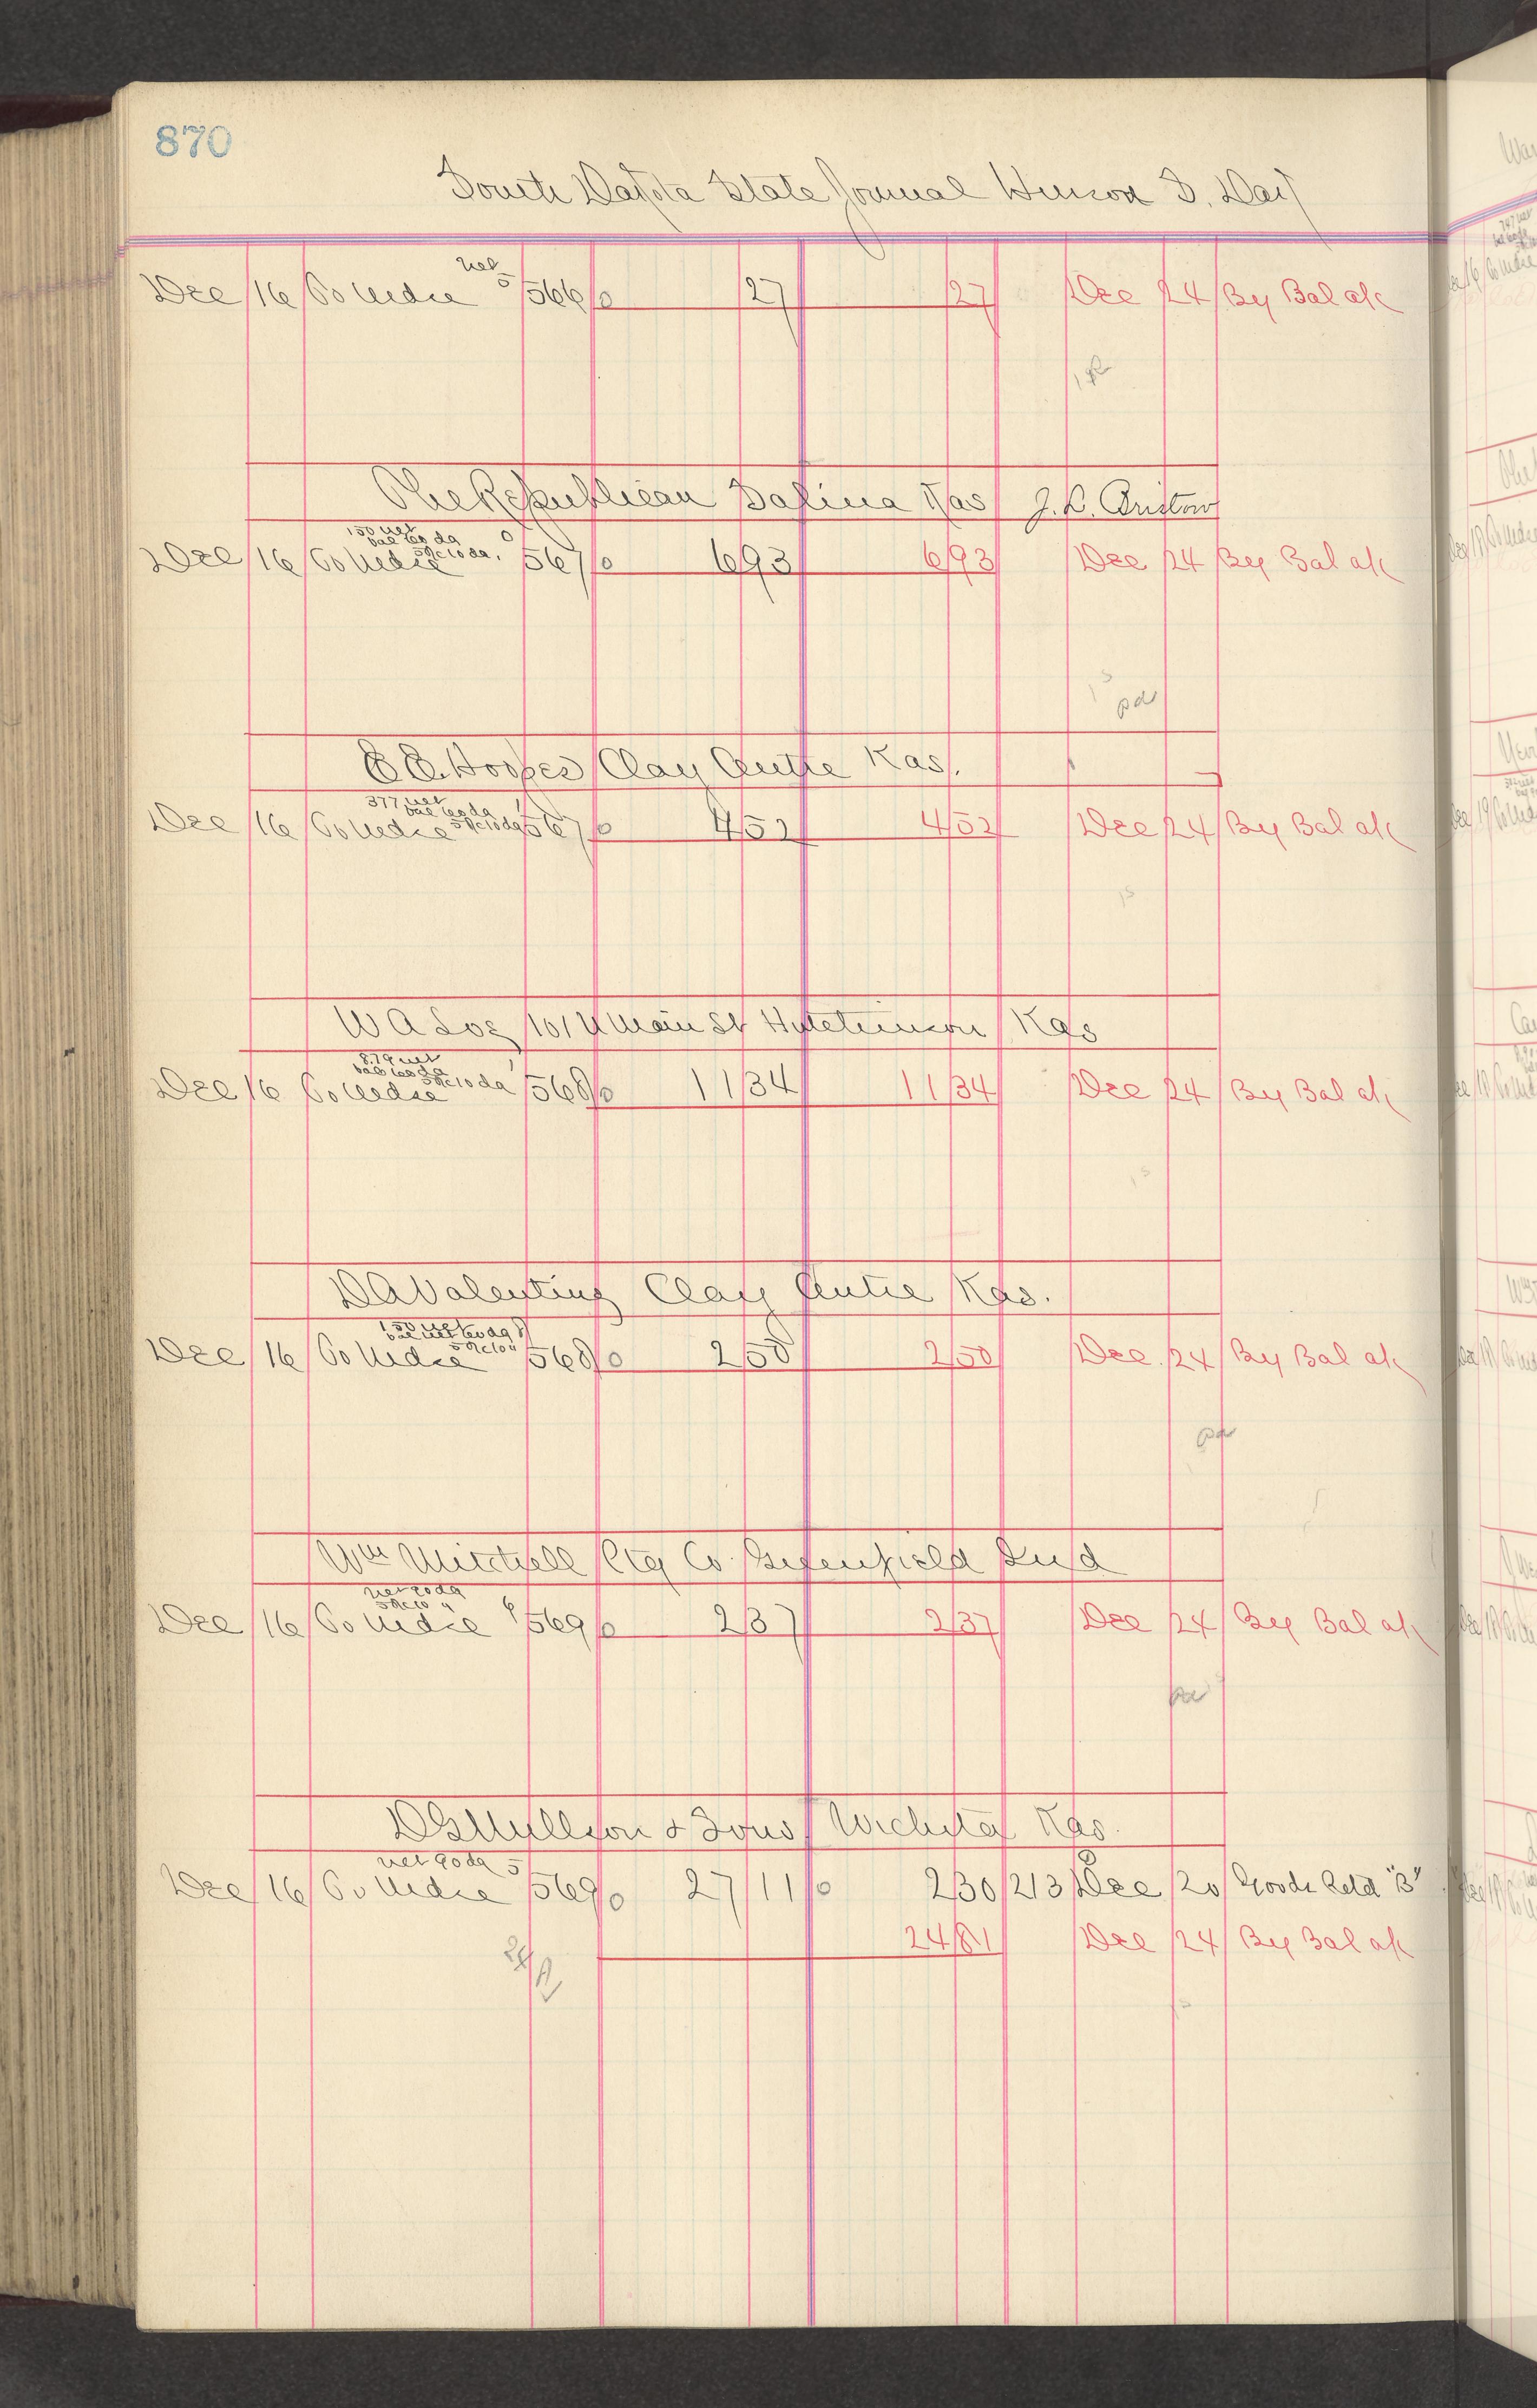 870
South Dakota State Journal Huron S. Dak
net
Dec 16 To Mdse 5 566 27 27 Dec 24 By Bal a/c
The Republican Salina Kas J. L. Bristow
150 net
bal 60 da
5% 10 da
Dec 16 To Mdse 0 567 6 93 6 93 Dec 24 By Bal a/c
pd
E. E. Hoopes Clay Centre Kas.
377 net
bal 60 da
5% 10 da
Dec 16 To Mdse 1 567 4 52 4 52 Dec 24 By Bal a/c
W A Loe 101 N Main St Hutchinson Kas
8.79 net
bal 60 da
5% 10 da
Dec 16 To Mdse 568 11 34 11 34 Dec 24 By Bal a/c
D A Valentine Clay Centre Kas.
150 net
bal net 60 da
5% 10 "
Dec 16 To Mdse 8 568 2 50 2 50 Dec 24 By Bal a/c
pd
Wm Mitchell Ptg Co. Greenfield Ind
net 90 da
5% 10 "
Dec 16 To Mdse 569 2 37 2 37 Dec 24 By Bal a/c
pd
& Sons Wichita Kas.
net 90 da 5
Dec 16 To Mdse 569 27 11 2 30 213 Dec 20 Goods Retd "B"
24 81 Dec 24 By Bal a/c